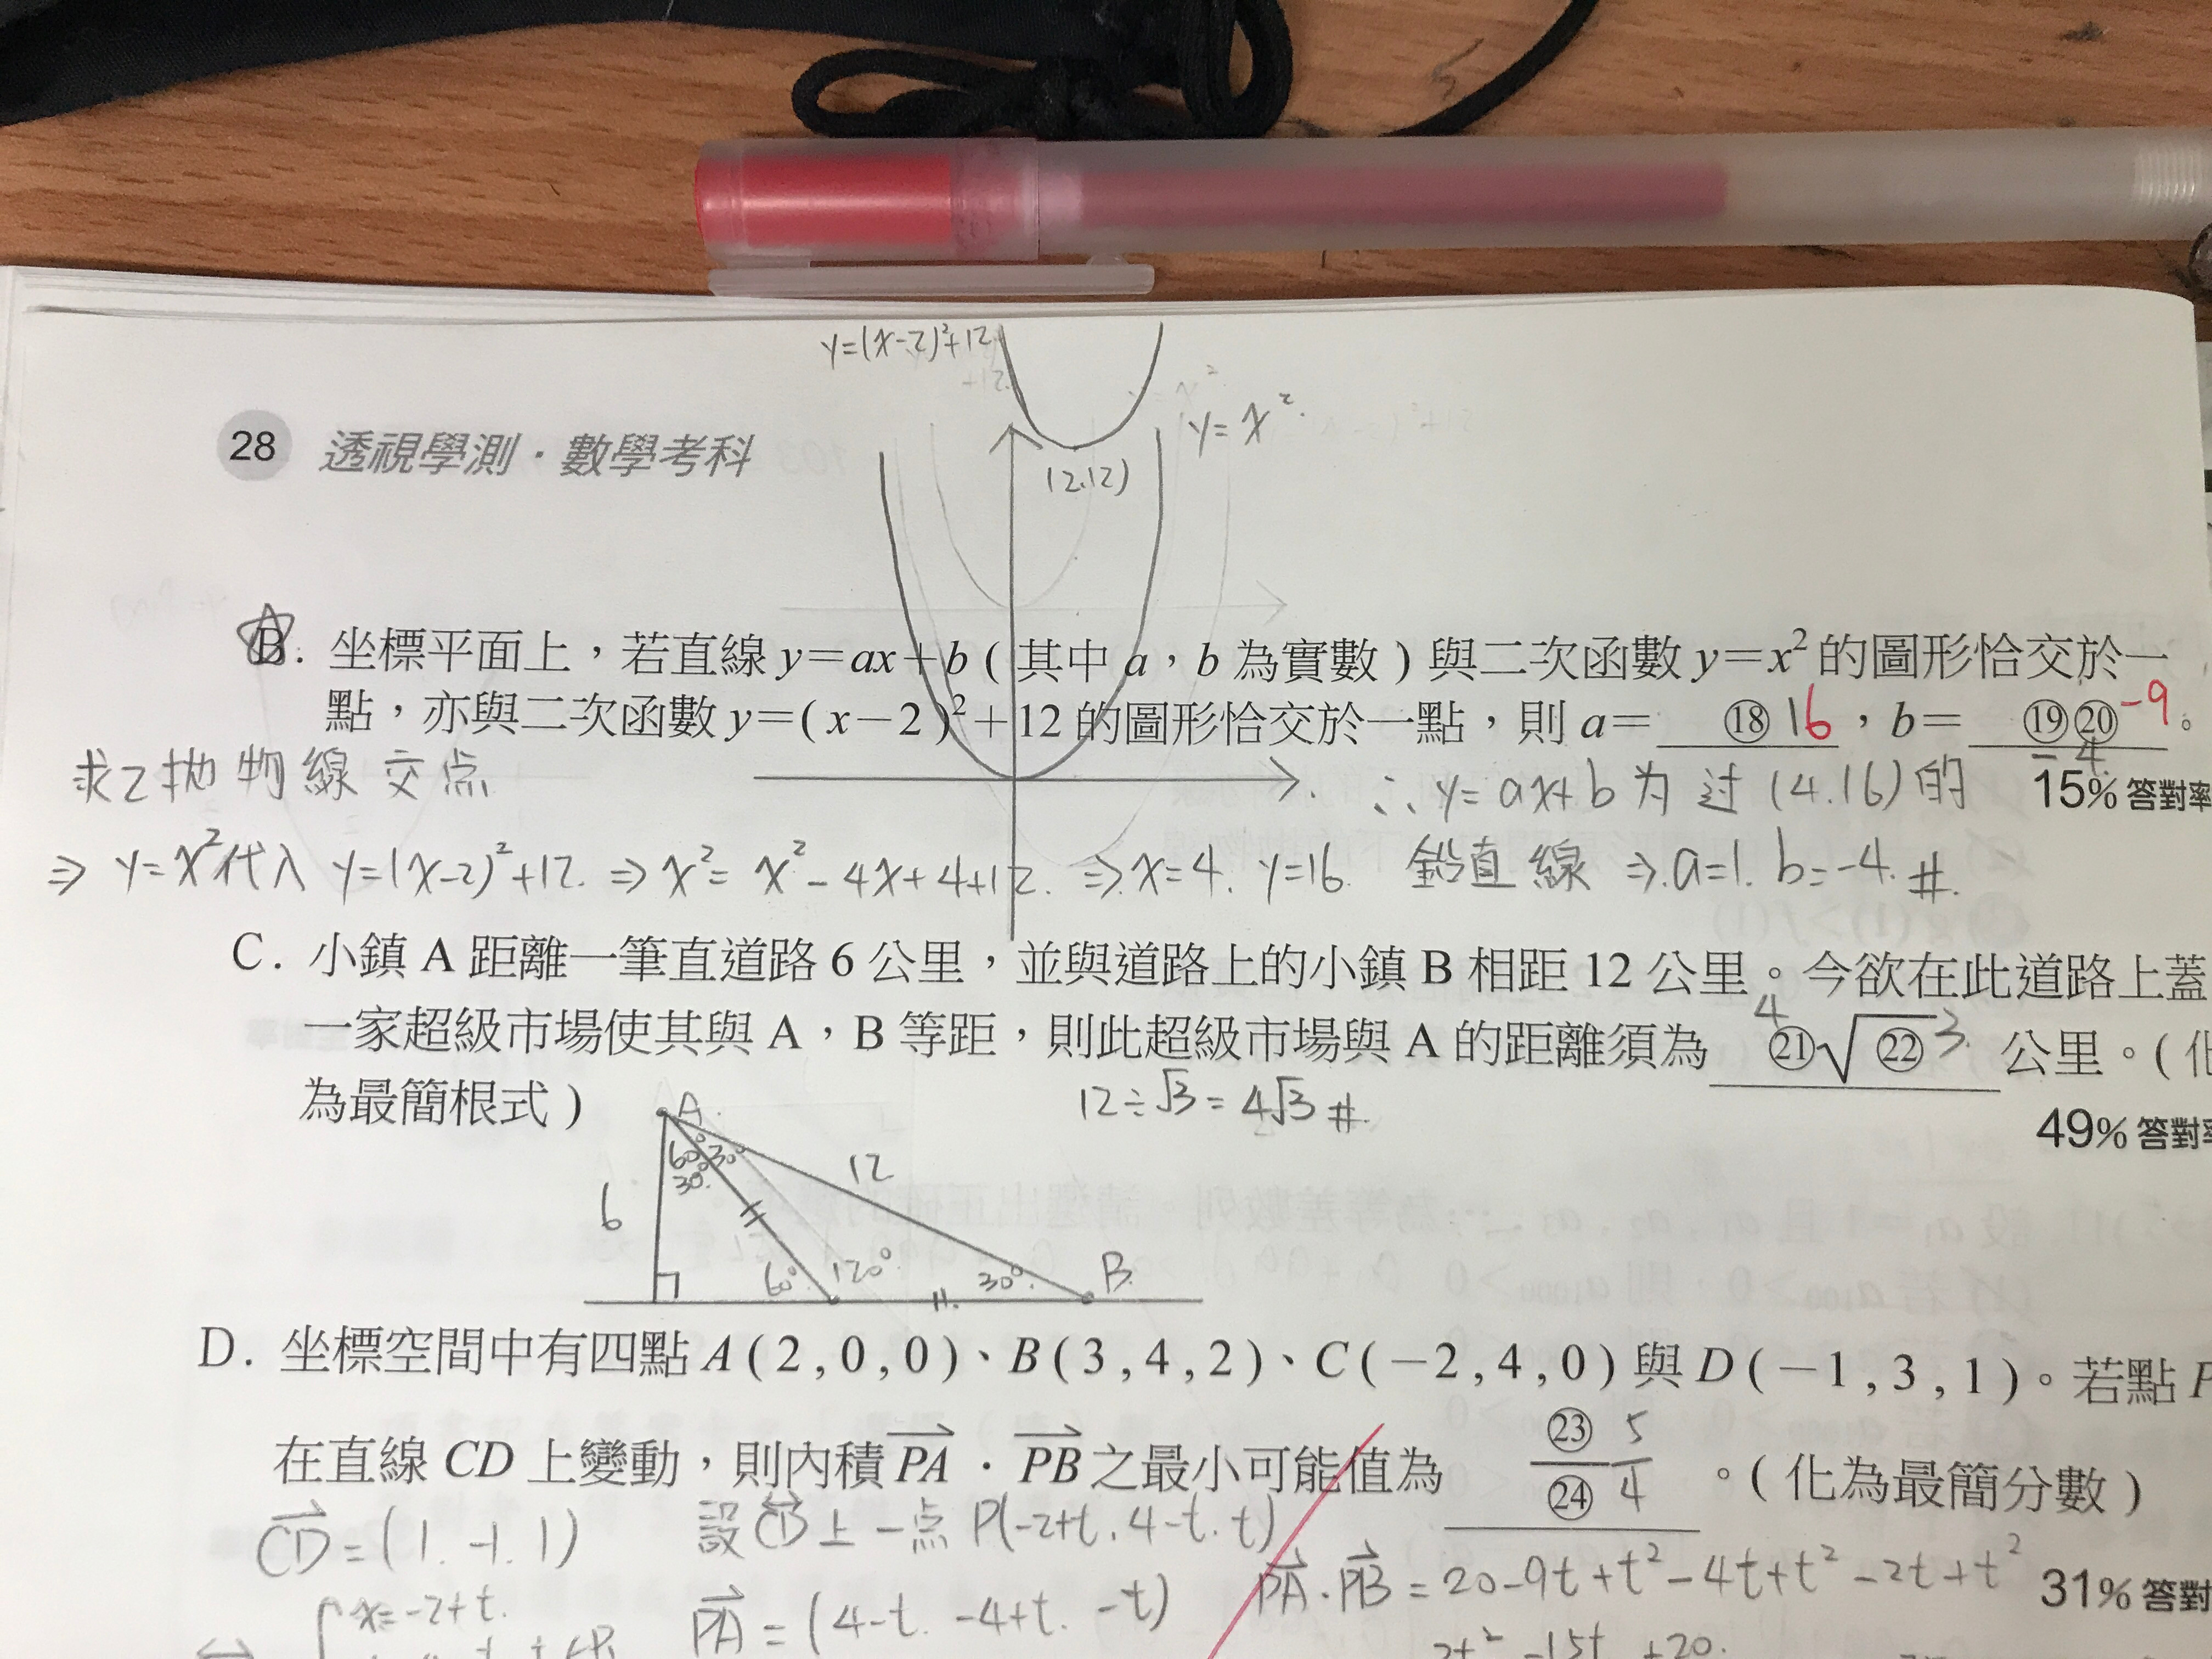 y=(x-2)²+12
y=x².
28 透視學測·數學考科
(2.12)
B. 坐標平面上,若直線 y=ax+b(其中 a,b 為實數)與二次函數 y=x² 的圖形恰交於一
點,亦與二次函數 y=(x-2)²+12 的圖形恰交於一點,則 a= ⑱ 16 ,b= ⑲⑳ -9 。
-4
求2拋物線交点
∴y=ax+b为过(4.16)的
15% 答對率
⇒ y=x²代入 y=(x-2)²+12. ⇒ x²= x²-4x+4+12. ⇒ x=4. y=16. 鉛直線 ⇒ a=1. b=-4. #.
C. 小鎮 A 距離一筆直道路 6 公里,並與道路上的小鎮 B 相距 12 公里。今欲在此道路上蓋
一家超級市場使其與 A,B 等距,則此超級市場與 A 的距離須為 4 ㉑√㉒ 3 公里。(化
為最簡根式)
12÷√3=4√3 #.
49% 答對
A.
60° 30°
30°
12
6
60° 120°
30°
B.
D. 坐標空間中有四點 A(2,0,0)、B(3,4,2)、C(-2,4,0)與 D(-1,3,1)。若點 P
在直線 CD 上變動,則內積 PA·PB 之最小可能值為 ㉓/㉔ 5/4 。(化為最簡分數)
CD=(1.-1.1)
設CD上一点 P(-2+t.4-t.t)
PA·PB=20-9t+t²-4t+t²-2t+t²
31% 答對
x=-2+t.
PA=(4-t. -4+t. -t)
-15t +20.